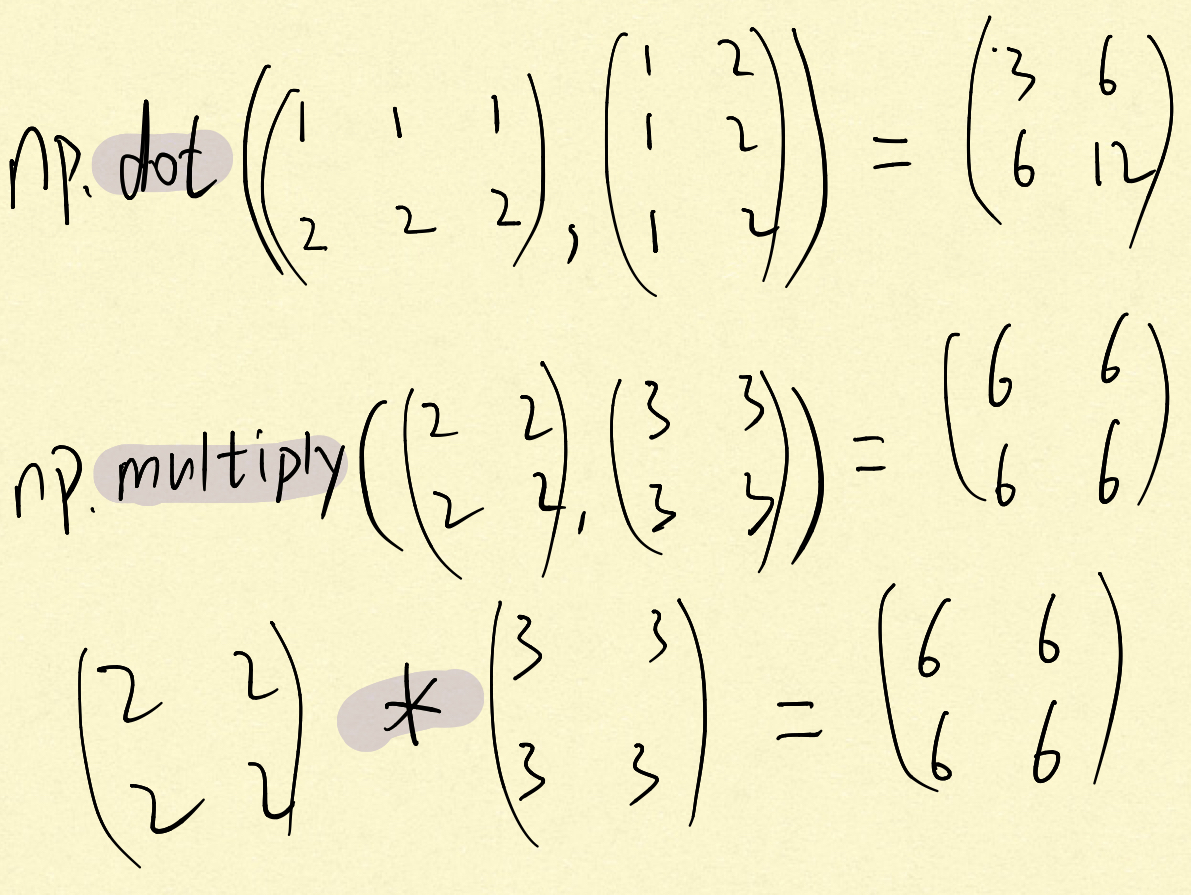 np.dot((1 1 1
2 2 2), (1 2
1 2
1 2)) = (3 6
6 12)
np.multiply((2 2
2 2), (3 3
3 3)) = (6 6
6 6)
(2 2
2 2) * (3 3
3 3) = (6 6
6 6)